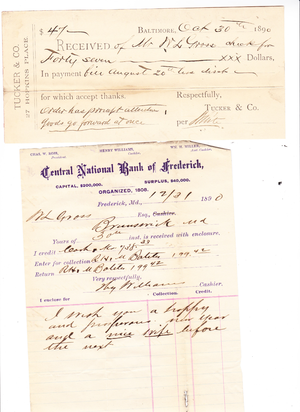 TUCKER & CO.
27 HOPKINS PLACE.
$ 47/-
BALTIMORE, Oct 30th 1890
RECEIVED of Mr W L Gross check for
Forty seven xxx Dollars,
In payment bill August 20th less disct
for which accept thanks. Respectfully,
Order has prompt attention TUCKER & CO.
Goods go forward at once per
CHAS. W. ROSS, HENRY WILLIAMS, WM. H. MILLER,
Central National Bank of Frederick,
CAPITAL, $200,000. SURPLUS, $40,000.
ORGANIZED, 1808.
Frederick, Md., 12/31 1890
W L Gross Esq., Cashier.
Brunswick Md
Yours of 30th inst. is received with enclosure.
I credit
Enter for collection 199.42
Return 199.42
Very respectfully,
Hy Williams Cashier.
I enclose for Collection. Credit.
I wish you a happy
and prosperous new year
and a nice wife before
the next